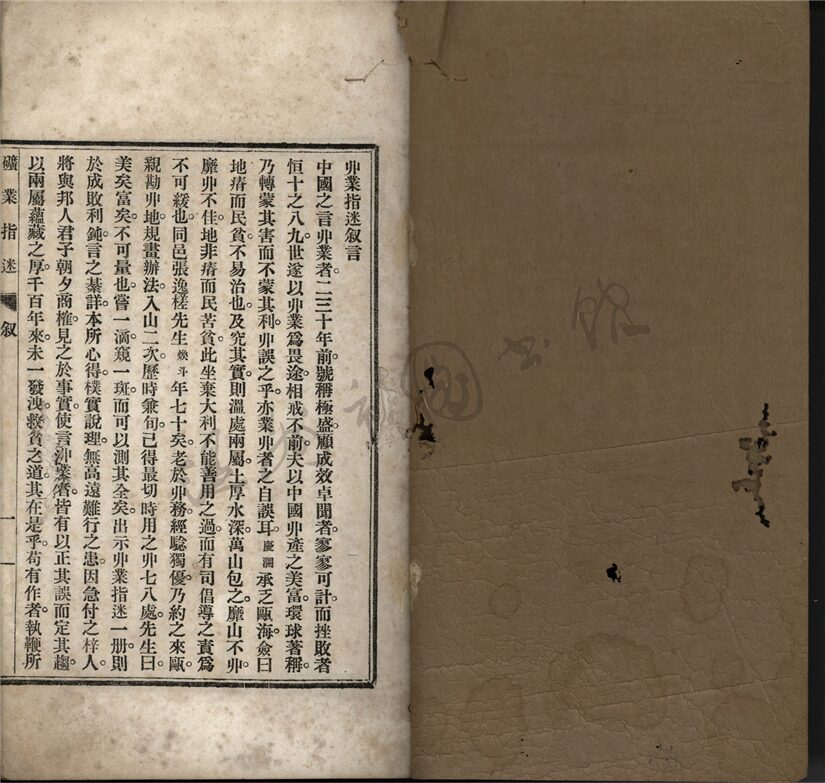 丱業指迷叙言
中國之言丱業者二三十年前號稱極盛顧成效卓聞者寥寥可計而挫敗者
恒十之八九世遂以丱業爲畏途相戒不前夫以中國丱產之美富環球著稱
乃轉蒙其害而不蒙其利丱誤之乎亦業丱者之自誤耳慶瀾承乏甌海僉曰
地瘠而民貧不易治也及究其實則溫處兩屬土厚水深萬山包之靡山不丱
靡丱不佳地非瘠而民苦貧此坐棄大利不能善用之過而有司倡導之責爲
不可緩也同邑張逸槎先生煥斗年七十矣老於丱務經騐獨優乃約之來甌
親勘丱地規畫辦法入山二次歷時兼旬已得最切時用之丱七八處先生曰
美矣富矣不可量也嘗一滴窺一斑而可以測其全矣出示丱業指迷一册則
於成敗利鈍言之綦詳本所心得樸實說理無高遠難行之患因急付之梓人
將與邦人君子朝夕商榷見之於事實使言丱業者皆有以正其誤而定其趨
以兩屬蘊藏之厚千百年來未一發洩救貧之道其在是乎苟有作者執鞭所
礦業指迷 叙 一